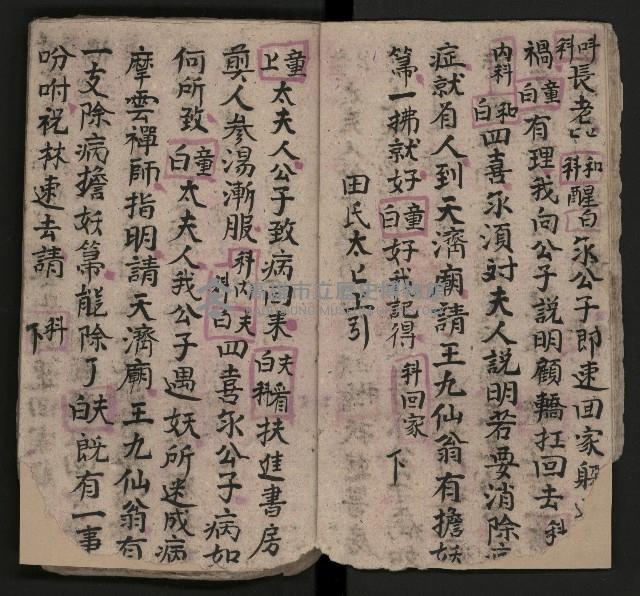 叫科長老口科和醒白尔公子即速回家
禍童白有理我向公子説明顧轎扛回去科
内科和白四喜尔須対夫人説明若要消除
症就有人到天濟廟請王九仙翁有擔妖
箒一拂就好童白好我記得科回家 下
田氏太上主引
童上太夫人公子致病回来夫看白科扶進書房
煎人參湯漸服科内夫科白四喜尔公子病如
何所致童白太夫人我公子遇妖所迷成病
摩雲禪師指明請天濟廟王九仙翁有
一支除病擔妖箒能除了夫白既有一事
吩咐祝林速去請科下
高雄市立歷史博物館